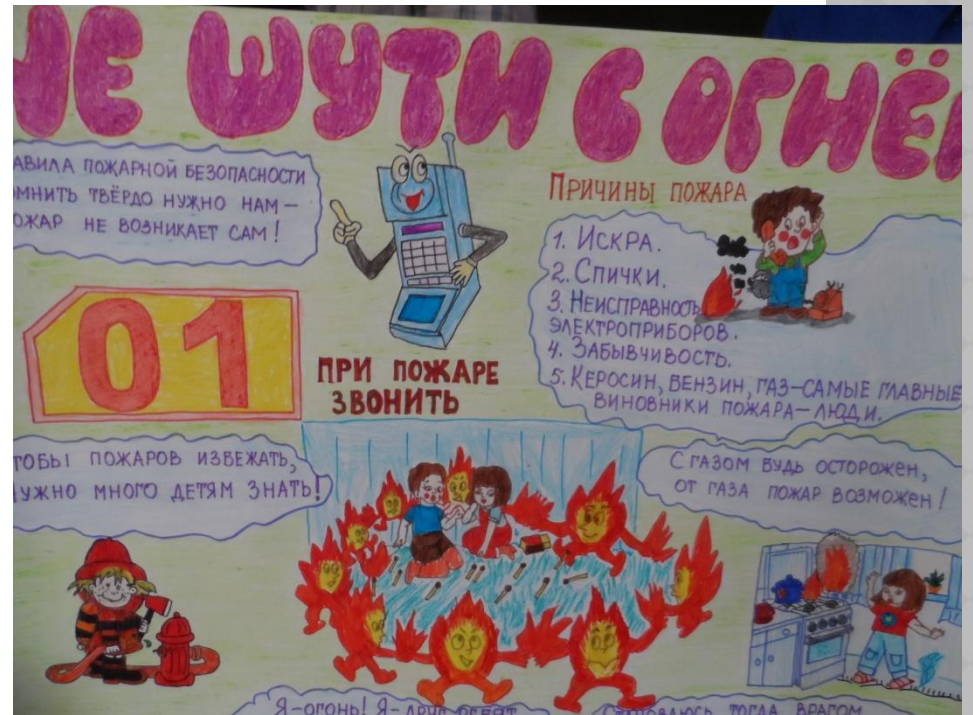 НЕ ШУТИ С ОГНЁ
АВИЛА ПОЖАРНОЙ БЕЗОПАСНОСТИ
ОМНИТЬ ТВЁРДО НУЖНО НАМ –
ОЖАР НЕ ВОЗНИКАЕТ САМ!
01
ПРИ ПОЖАРЕ
ЗВОНИТЬ
ПРИЧИНЫ ПОЖАРА
1. ИСКРА.
2. СПИЧКИ.
3. НЕИСПРАВНОСТЬ
ЭЛЕКТРОПРИБОРОВ.
4. ЗАБЫВЧИВОСТЬ.
5. КЕРОСИН, БЕНЗИН, ГАЗ–САМЫЕ ГЛАВНЫЕ
ВИНОВНИКИ ПОЖАРА–ЛЮДИ.
ТОБЫ ПОЖАРОВ ИЗБЕЖАТЬ,
НУЖНО МНОГО ДЕТЯМ ЗНАТЬ!
С ГАЗОМ БУДЬ ОСТОРОЖЕН,
ОТ ГАЗА ПОЖАР ВОЗМОЖЕН!
Я–ОГОНЬ! Я–ДРУГ РЕБЯТ
ТОГДА ВРАГОМ